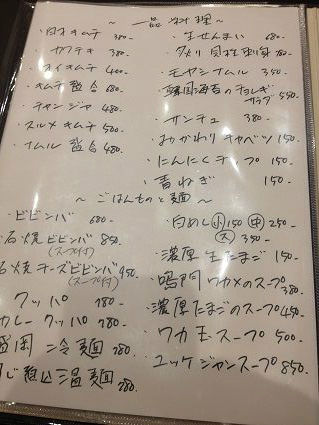 ～ 一品料理 ～
・白才キムチ 380-
・カクテキ 380-
・オイキムチ 400-
・キムチ盛合 680-
・チャンジャ 480-
・スルメキムチ 500-
・ナムル盛合 480-
・生せんまい 680-
・タタリ貝柱刺身 780-
・モヤシナムル 350-
・韓国海苔のチョレギサラダ 550-
・サンチュ 380-
・おかわりキャベツ 150-
・にんにくチップ 150-
・青ねぎ 150-
～ ごはんものと麺 ～
・ビビンバ 680-
石焼ビビンバ 850-
(スープ付)
石焼チーズビビンバ 950-
(スープ付)
クッパ 780-
カレークッパ 780-
盛岡冷麺 780-
温麺 780-
・白めし 小 150 中 250-
大 350-
・濃厚生たまご 150-
・鳴門ワカメのスープ 380-
・濃厚たまごのスープ 450-
・ワカ玉スープ 500-
・ユッケジャンスープ 850-